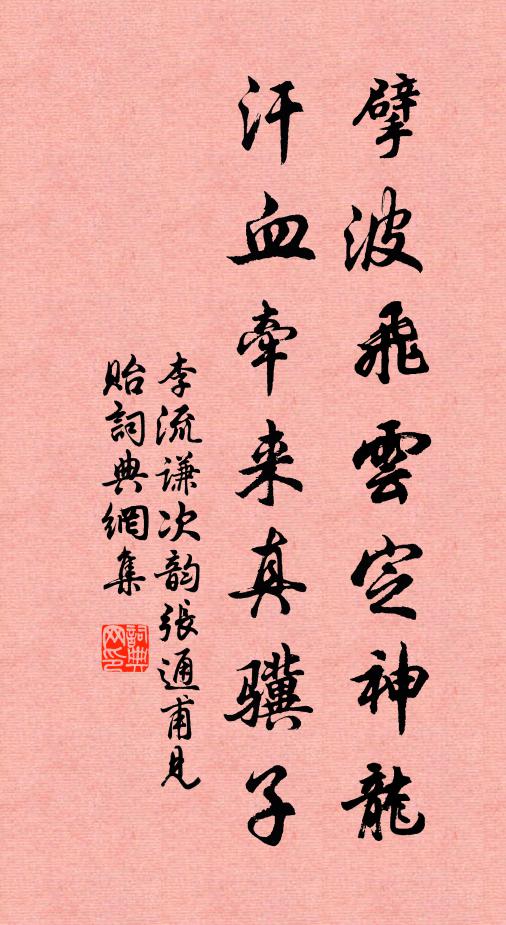 擘波飛雲定神龍
汗血牽来真驥子
李流谦次韵張通甫見
貽詞典網集
詞典网印